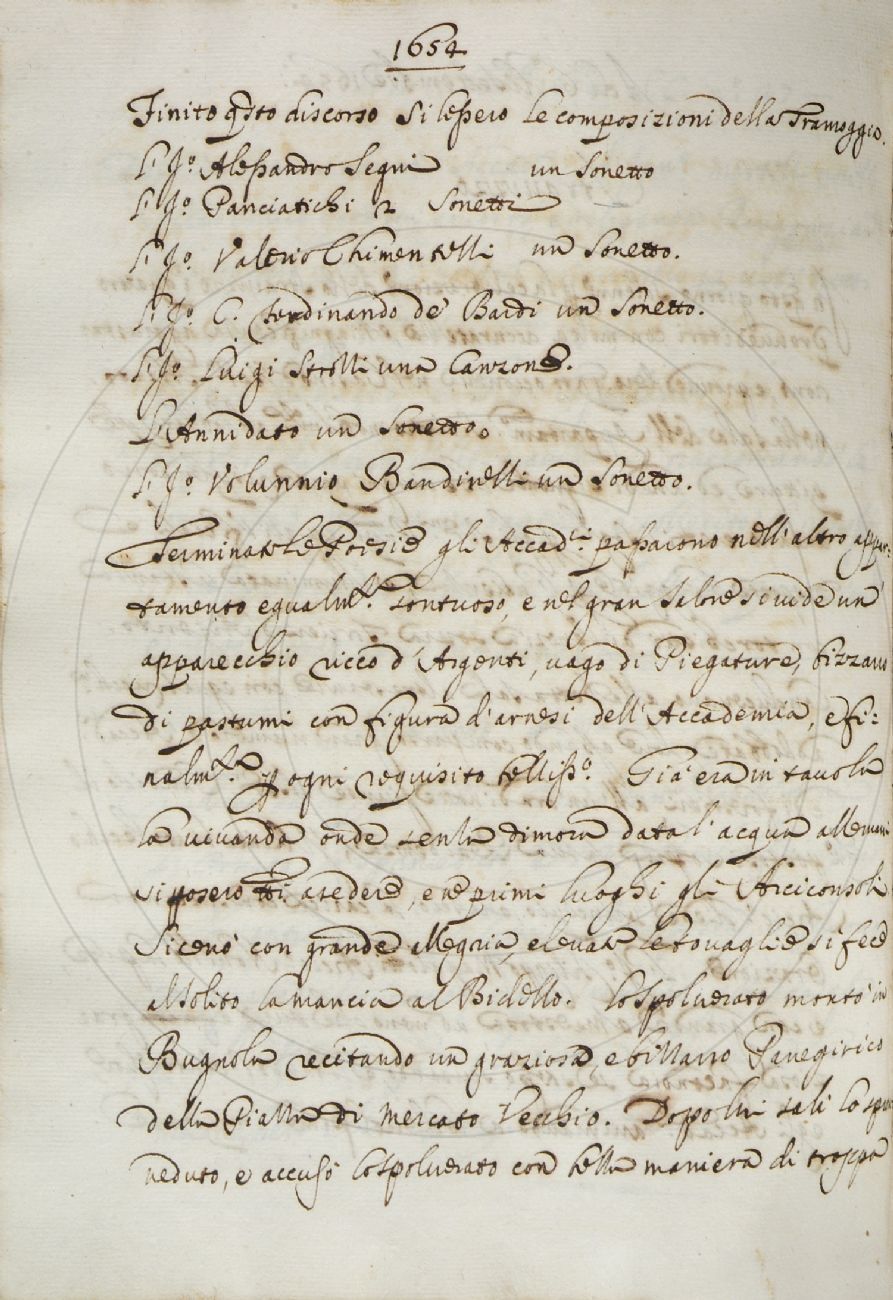 1654
Finito q.sto discorso si lessero le composizioni della Tramoggia.
S.r Alessandro Segni un Sonetto
S.r Panciatichi 2 Sonetti
S.r Valerio Chimentelli un Sonetto.
S.r C. Ferdinando de' Bardi un Sonetto.
S.r Luigi Strozzi una Canzone.
L'Annidato un Sonetto.
S.r Volunnio Bandinelli un Sonetto.
Terminate le Poesie gli Accad.ci passarono nell'altro appar:
tamento egualm.te sontuoso, e nel gran Salone si vide un
apparecchio ricco d'Argenti, vago di Piegature, bizzarro
di pastumi con figura d'arnesi dell'Accademia, e fi:
nalm.te p ogni requisito belliss.o Già era in tavola
la vivanda onde senza dimora data l'acqua alle mani
si posero tti a sedere, e ne primi luoghi gli Arciconsoli
Si cenò con grande allegria, e levate le tovaglie si fece
al solito la mancia al Bidello. Lo Spolverato montò in
Bugnola recitando un grazioso, e bizzarro Panegirico
della Piazza di Mercato Vecchio. Dopo lui salì lo Sprov
veduto, e accusò lo Spolverato con bella maniera di troppa